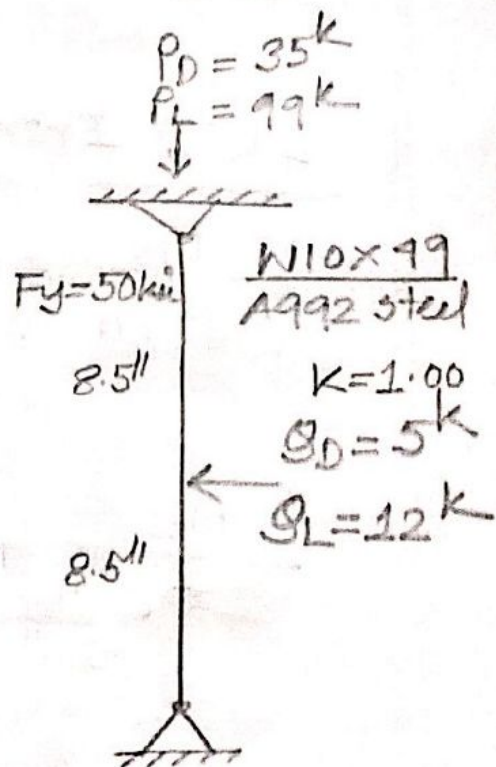 P_D = 35^k
P_L = 99^k
Fy=50ksi
W10×49
A992 steel
8.5"
K=1.00
Q_D = 5^k
Q_L = 12^k
8.5"